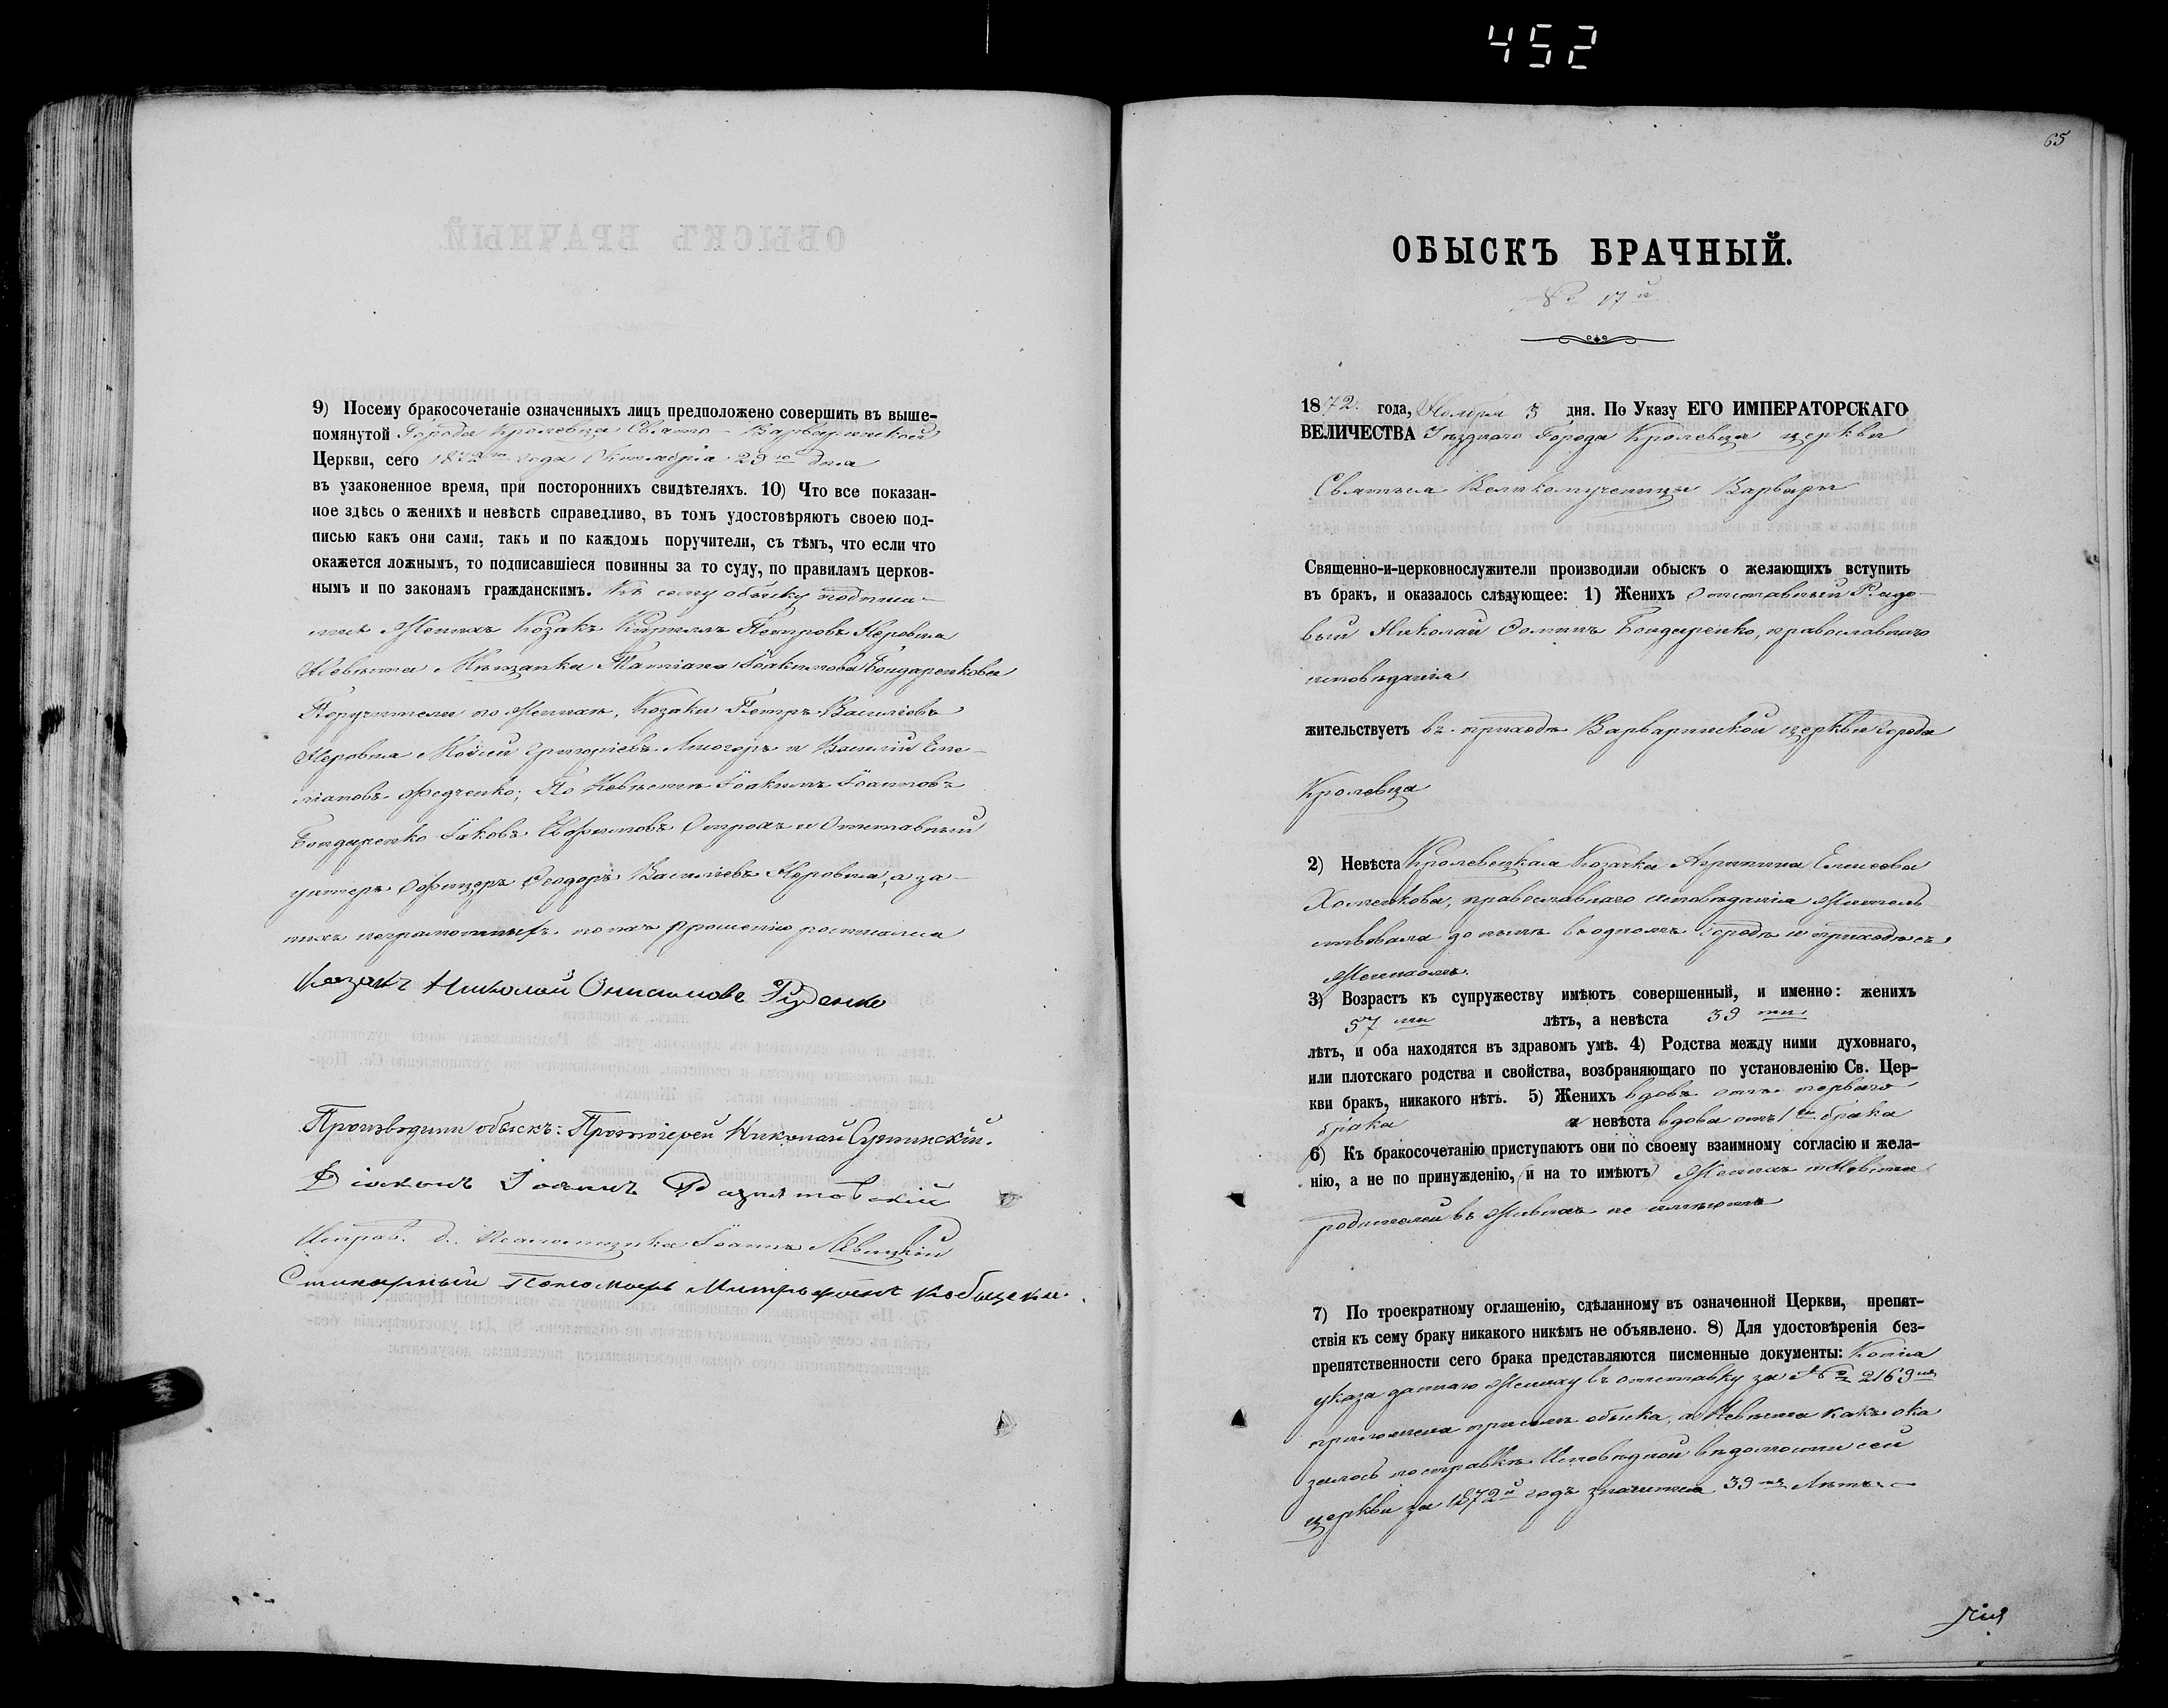 452
9) Посему бракосочетаніе означенныхъ лицъ предположено совершить въ выше-
помянутой Города Кролевца Свято-Варваринской
Церкви, сего 1872го года Октября 29го дня
въ узаконенное время, при постороннихъ свидѣтеляхъ. 10) Что все показан-
ное здѣсь о женихѣ и невѣстѣ справедливо, въ томъ удостовѣряютъ своею под-
писью какъ они сами, такъ и по каждомъ поручители, съ тѣмъ, что если что
окажется ложнымъ, то подписавшіеся повинны за то суду, по правиламъ церков-
нымъ и по законамъ гражданскимъ. Къ сему обыску
Женихъ Козакъ Кириллъ Петровъ Неровня
Невѣста Мѣщанка Татіана Іоакимова Бондаренкова
Поручители по Женихѣ, Козаки Петръ Василіевъ
Неровня Моисей Григоріевъ и Василій Еме-
ліановъ Федченко; По Невѣстѣ Іоакимъ Іоанновъ
Бондаренко Іаковъ и Отставный
унтеръ Офицеръ Ѳеодоръ Василіевъ Неровня, а за
ихъ неграмотныхъ по ихъ прошенію росписался
Козакъ Николай Онисимовъ Руденко
Производили обыскъ: Протоіерей Николай
Діаконъ Іоаннъ
Исправ. д. Псаломщика Іоаннъ Левицкій
Пономарь Митрофанъ
65
ОБЫСКЪ БРАЧНЫЙ.
№ 17й
1872 года, Ноября 5 дня. По Указу ЕГО ИМПЕРАТОРСКАГО
ВЕЛИЧЕСТВА Уѣзднаго Города Кролевца церкви
Святыя Великомученицы Варвары
Священно-и-церковнослужители производили обыскъ о желающихъ вступить
въ бракъ, и оказалось слѣдующее: 1) Женихъ Отставный Рядо-
вый Николай Бондаренко, православнаго
исповѣданія
жительствуетъ въ приходѣ Варваринской церкви Города
Кролевца
2) Невѣста Кролевецкая Козачка Агрипина Елисеева
Хоменкова, православнаго исповѣданія жительс
ствовала до нынѣ въ одномъ Городѣ и приходѣ съ
Женихомъ.
3) Возрастъ къ супружеству имѣютъ совершенный, и именно: женихъ
57 ми лѣтъ, а невѣста 39 ти
лѣтъ, и оба находятся въ здравомъ умѣ. 4) Родства между ними духовнаго,
или плотскаго родства и свойства, возбраняющаго по установленію Св. Цер-
кви бракъ, никакого нѣтъ. 5) Женихъ вдовъ отъ перваго
брака а невѣста вдова отъ 1го брака
6) Къ бракосочетанію приступаютъ они по своему взаимному согласію и жела-
нію, а не по принужденію, (и на то имѣютъ) Женихъ и Невѣста
родителей въ живыхъ не имѣютъ
7) По троекратному оглашенію, сдѣланному въ означенной Церкви, препят-
ствія къ сему браку никакого никѣмъ не объявлено. 8) Для удостовѣренія без-
препятственности сего брака представляются писменные документы: Копія
указа даннаго Жениху въ отставку за № 2169мъ
приложена при семъ обыскѣ, а Невѣста какъ ока
залось по справкѣ Исповѣдной вѣдомости сей
церкви за 1872й годъ значится 39ти Лѣтъ.